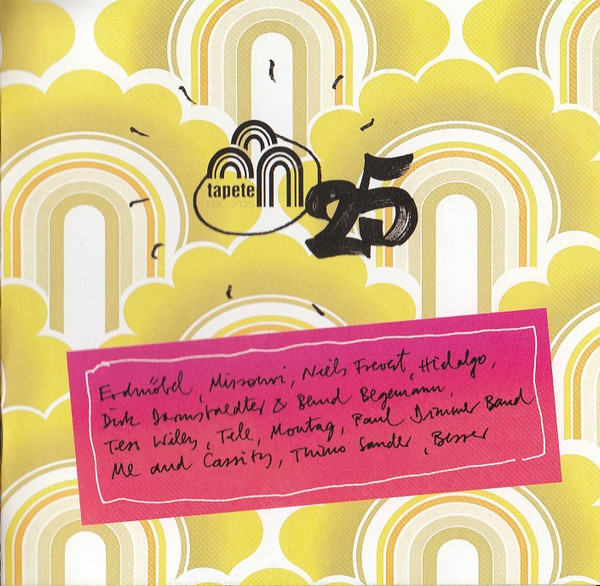 tapete
records
25
Erdmöbel, Missouri, Niels Frevert, Hidalgo,
Dirk Darmstaedter & Bernd Begemann,
Tess Wiley, Tele, Montag, Paul Dimmer Band
Me and Cassity, Thimo Sander, Besser